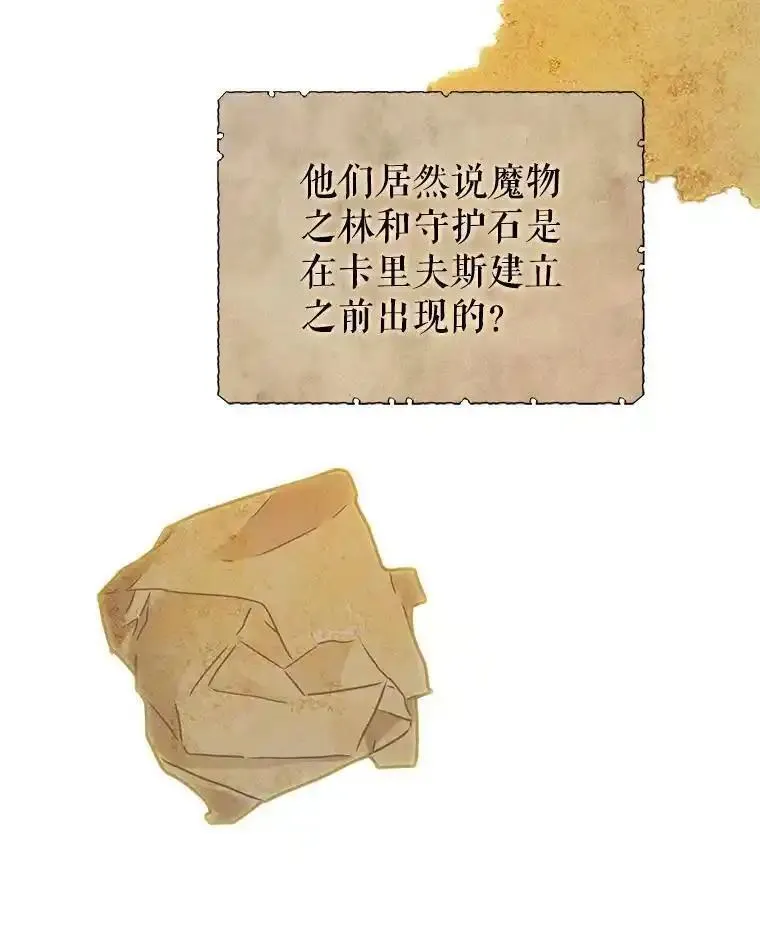 他们居然说魔物
之林和守护石是
在卡里夫斯建立
之前出现的?